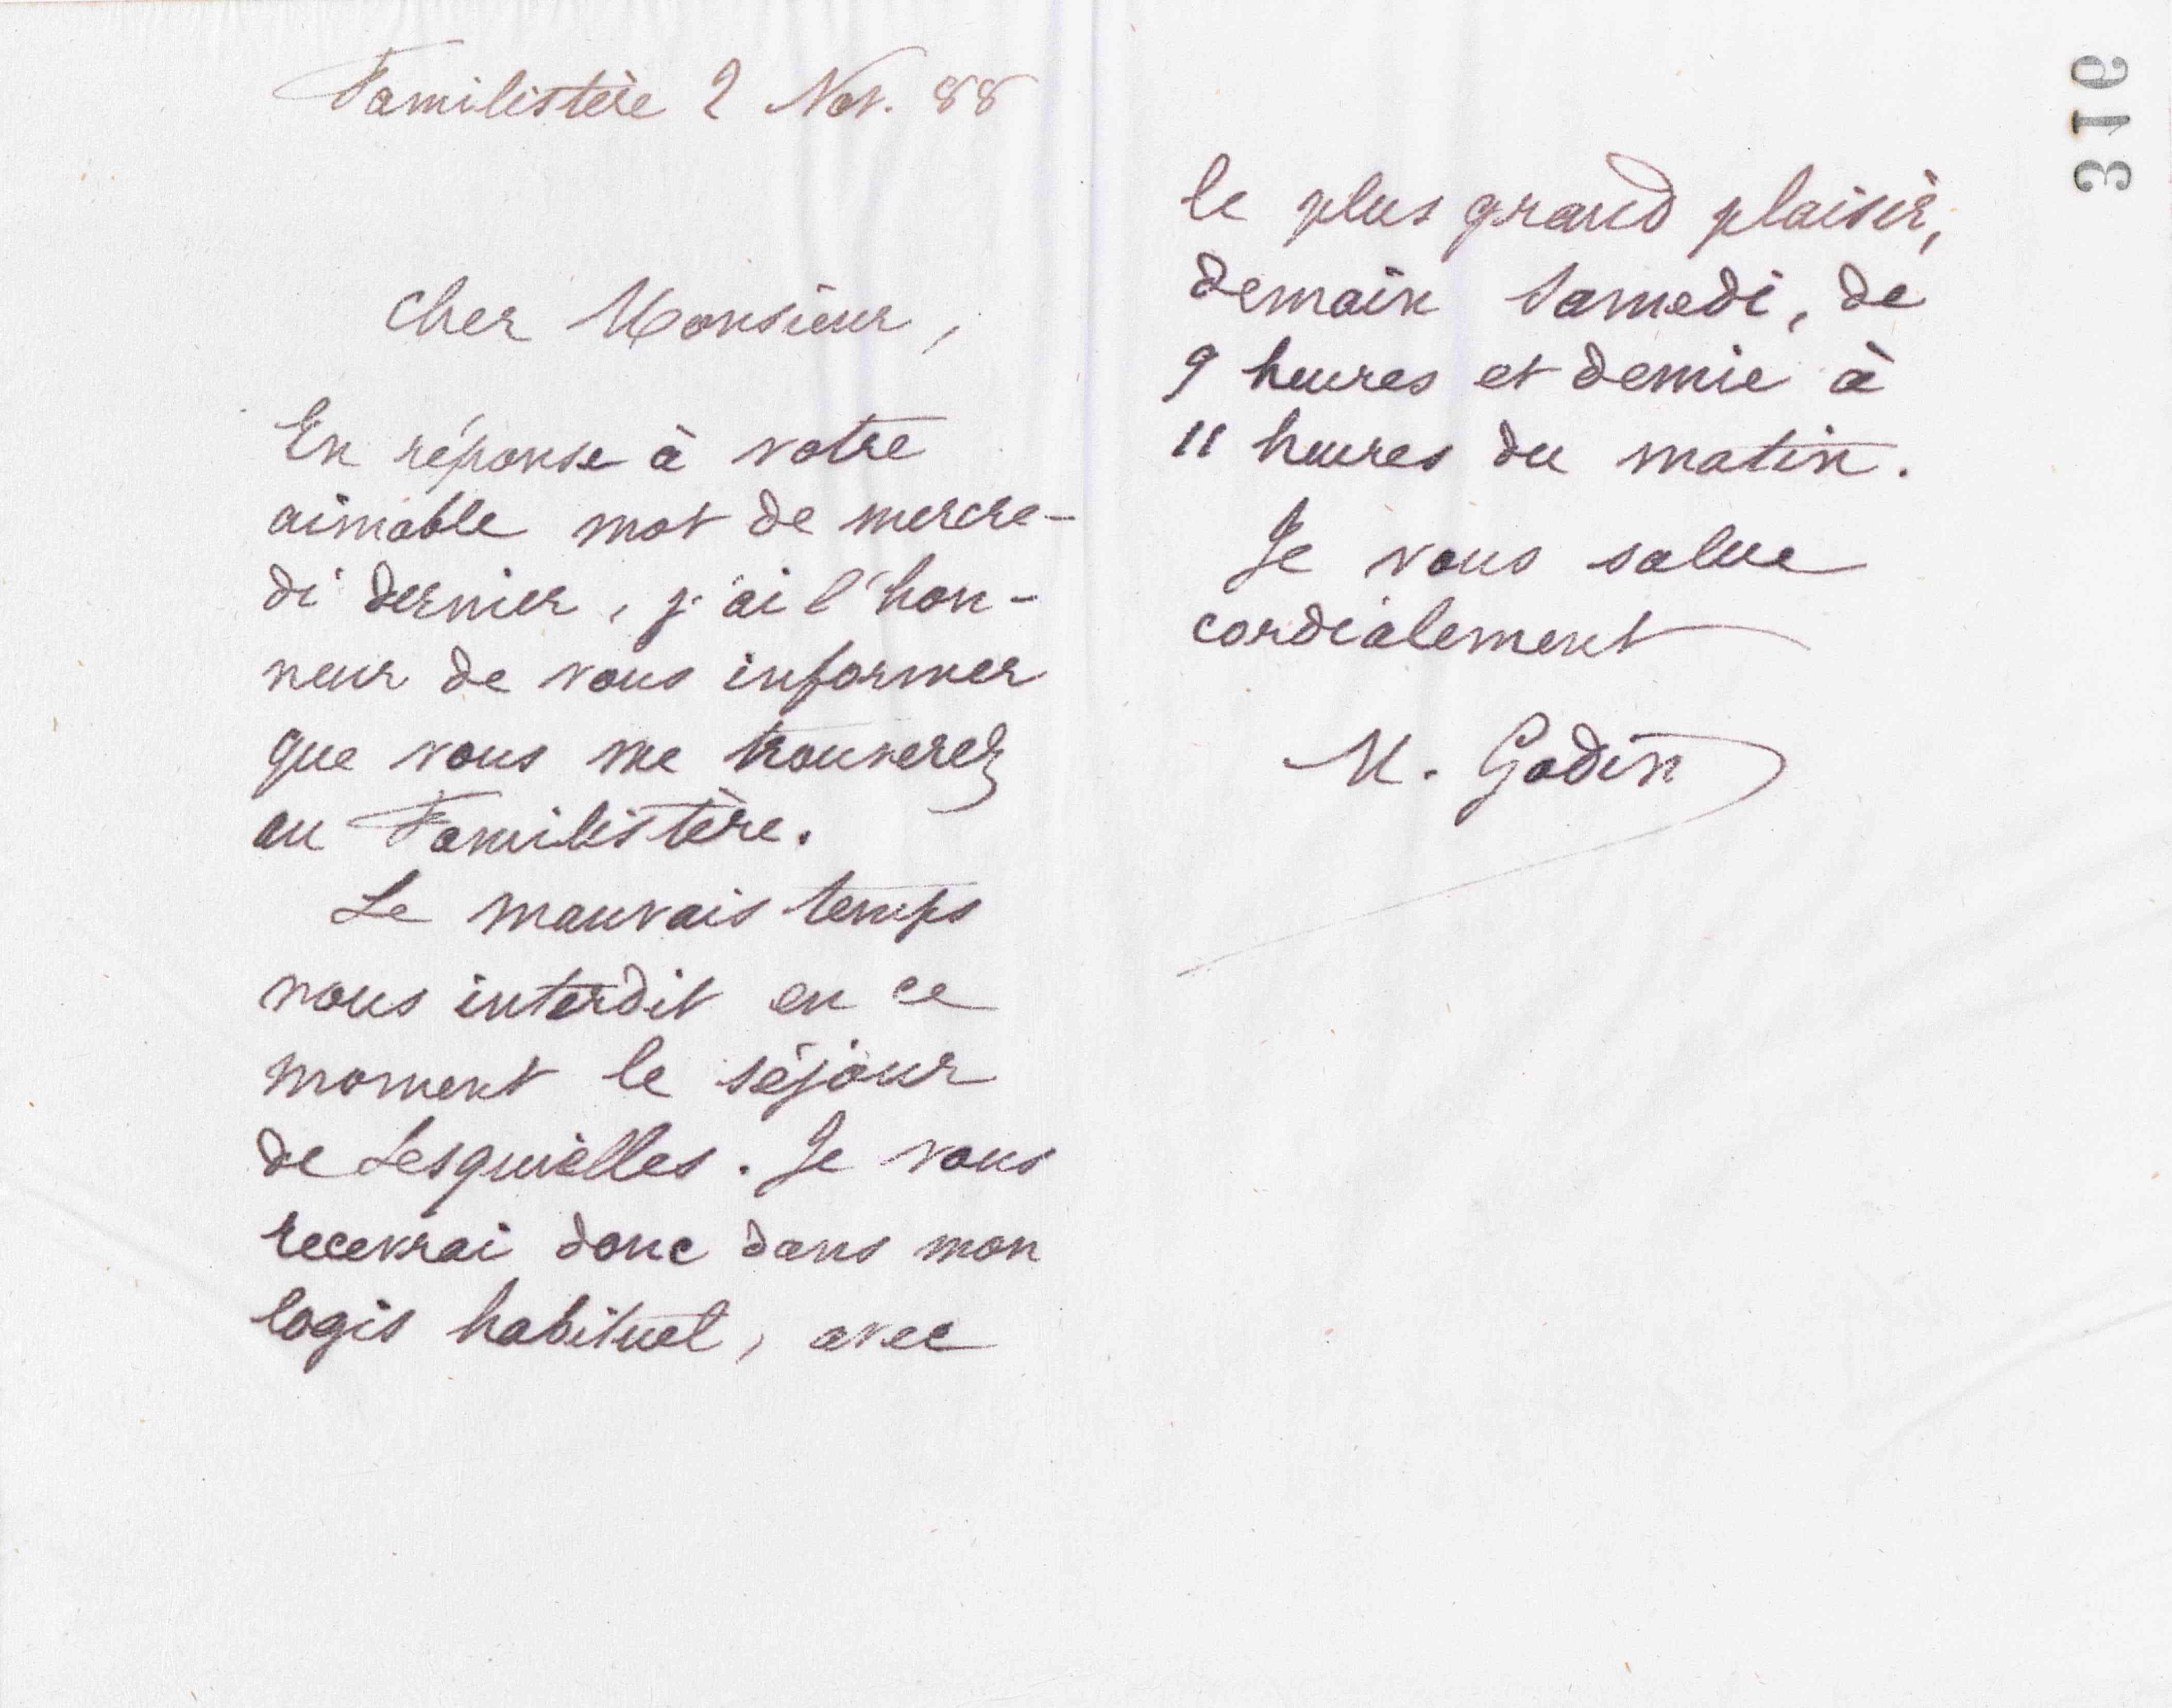 Familistère 2 Nov. 88
Cher Monsieur,
En réponse à votre
aimable mot de mercre-
di dernier, j'ai l'hon-
neur de vous informer
que vous me trouverez
au Familistère.
Le mauvais temps
nous interdit en ce
moment le séjour
de Lesquielles. Je vous
recevrai donc dans mon
logis habituel, avec
le plus grand plaisir,
demain Samedi, de
9 heures et demie à
11 heures du matin.
Je vous salue
cordialement
M. Godin
316